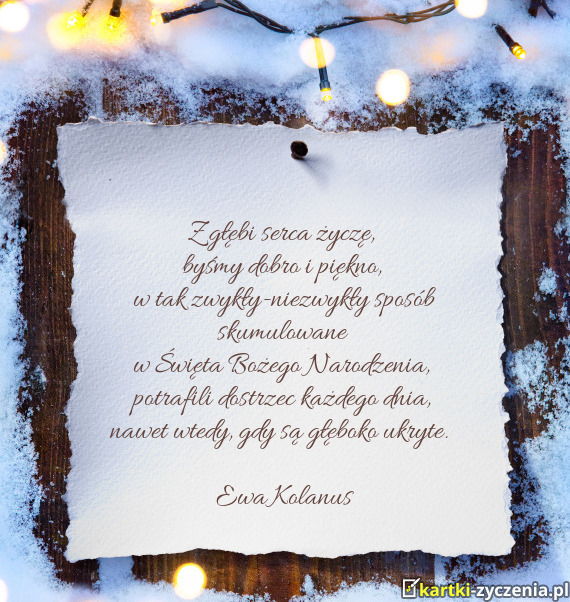 Z głębi serca życzę,
byśmy dobro i piękno,
w tak zwykły-niezwykły sposób
skumulowane
w Święta Bożego Narodzenia,
potrafili dostrzec każdego dnia,
nawet wtedy, gdy są głęboko ukryte.
Ewa Kolanus
kartki-zyczenia.pl